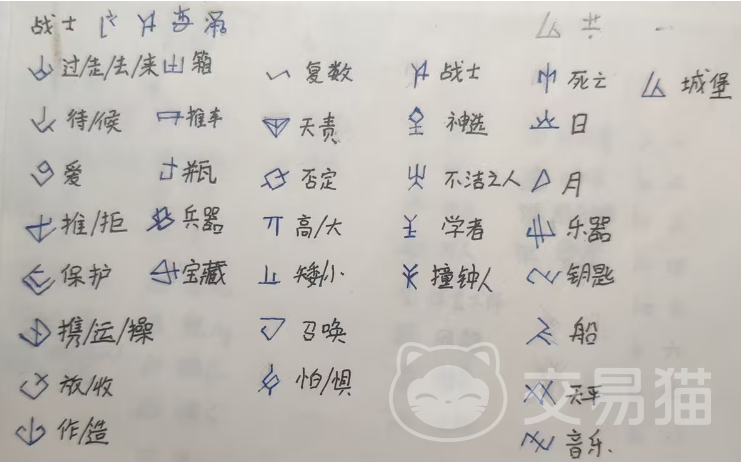 战士
过/走/去/来 箱 复数 战士 死亡 城堡
待/候 推车 天责 神选 日
爱 瓶 否定 不洁之人 月
推/拒 兵器 高/大 学者 乐器
保护 宝藏 矮小 撞钟人 钥匙
携/运/操 召唤 船
放/收 怕/惧 天平
作/造 音乐
交易猫